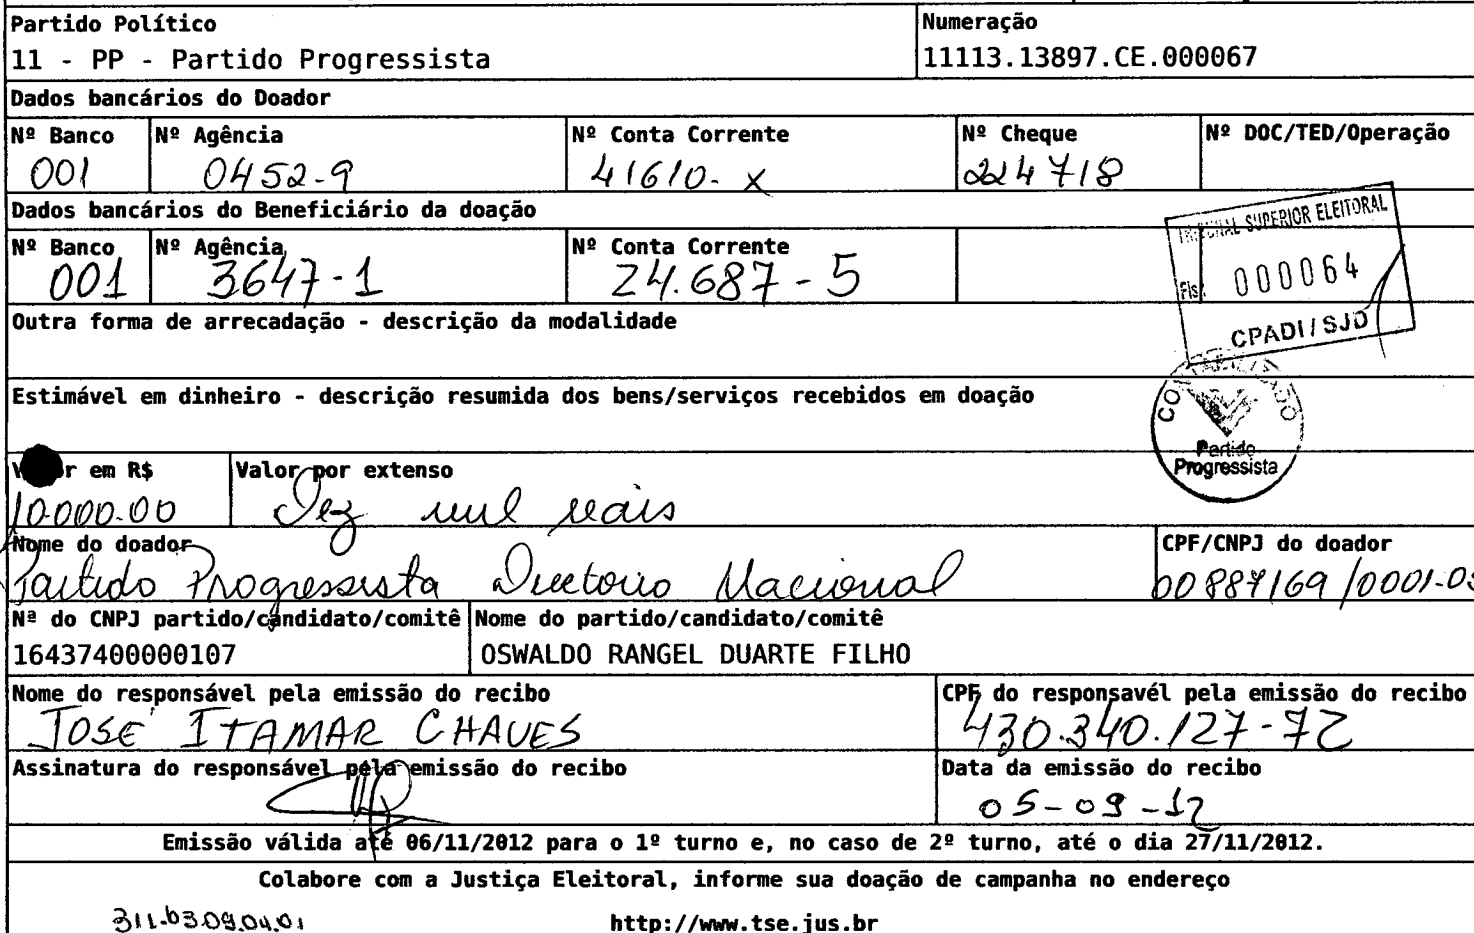 Partido Político Numeração
11 - PP - Partido Progressista 11113.13897.CE.000067
Dados bancários do Doador
Nº Banco Nº Agência Nº Conta Corrente Nº Cheque Nº DOC/TED/Operação
001 0452-9 41610-x 224718
Dados bancários do Beneficiário da doação
Nº Banco Nº Agência Nº Conta Corrente
001 3647-1 24.687-5
TRIBUNAL SUPERIOR ELEITORAL
Fls. 000064
CPADI/SJD
Outra forma de arrecadação - descrição da modalidade
Estimável em dinheiro - descrição resumida dos bens/serviços recebidos em doação
Partido
Progressista
em R$ Valor por extenso
10.000.00 Dez mil reais
Nome do doador CPF/CNPJ do doador
Partido Progressista Diretorio Nacional 00887169/0001-05
Nª do CNPJ partido/candidato/comitê Nome do partido/candidato/comitê
16437400000107 OSWALDO RANGEL DUARTE FILHO
Nome do responsável pela emissão do recibo CPF do responsavél pela emissão do recibo
JOSÉ ITAMAR CHAVES 430.340.127-72
Assinatura do responsável pela emissão do recibo Data da emissão do recibo
05-09-12
Emissão válida até 06/11/2012 para o 1º turno e, no caso de 2º turno, até o dia 27/11/2012.
Colabore com a Justiça Eleitoral, informe sua doação de campanha no endereço
311.03.09.04.01 http://www.tse.jus.br